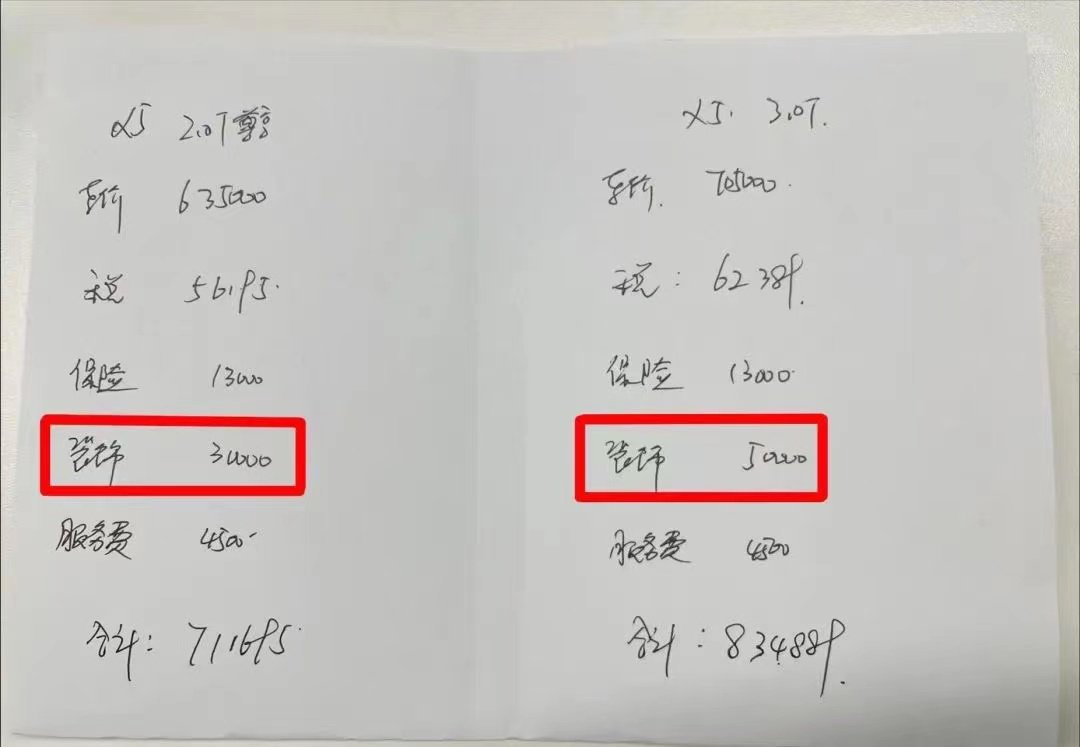 X5 2.0T 尊享
车价 635000
税 56195
保险 13000
装饰 30000
服务费 4500
合计: 711695
X5. 3.0T.
车价. 705000.
税: 62389.
保险 13000
装饰 50000
服务费 4500
合计: 834889.